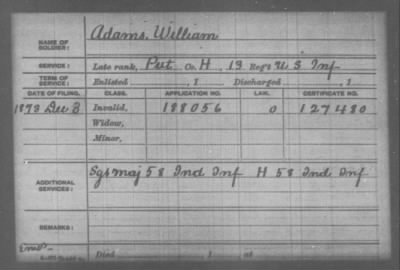 NAME OF SOLDIER: Adams, William
SERVICE: Late rank, Pvt Co. H, 13 Reg't U S Inf
TERM OF SERVICE: Enlisted , 1 Discharged , 1
DATE OF FILING. CLASS. APPLICATION NO. LAW. CERTIFICATE NO.
1873 Dec 3 Invalid, 188056 0 127480
Widow,
Minor,
ADDITIONAL SERVICES: Sgt maj 58 Ind Inf H 58 Ind Inf
REMARKS:
Died , 1 at